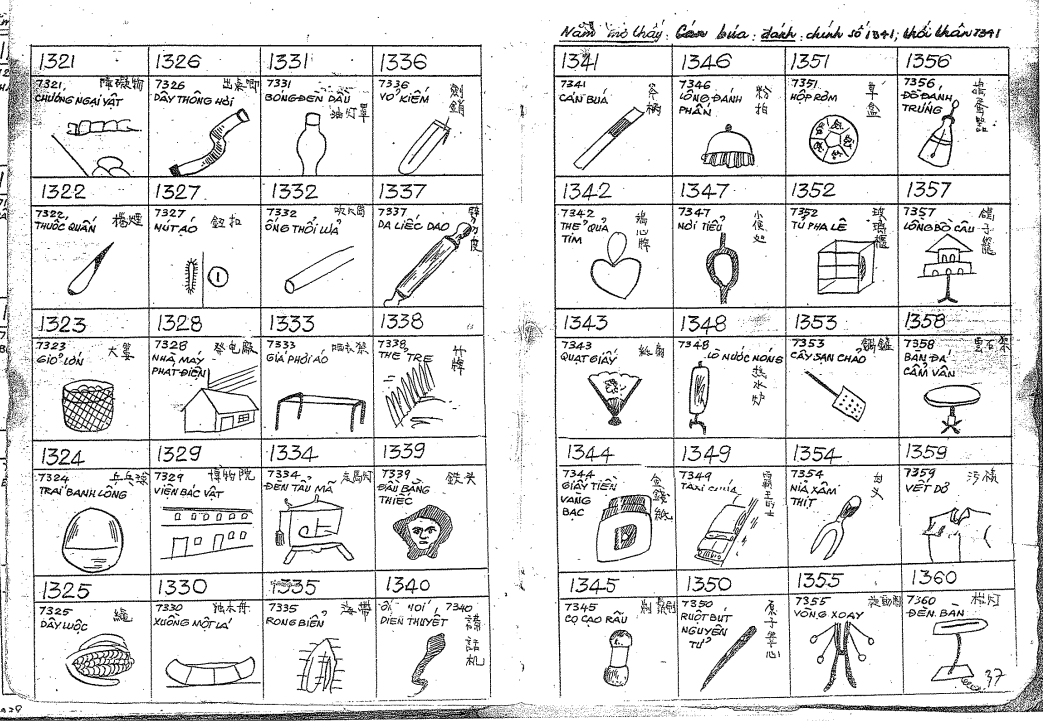 Nằm mơ thấy: Cán búa: đánh: chính số 1341; thối thân 7341
1321 1326 1331 1336
7321, 障礙物
CHƯỚNG NGẠI VẬT
7326
DÂY THÔNG HƠI
7331
BÓNG ĐÈN DẦU
油灯罩
7336
VỎ KIẾM
1322 1327 1332 1337
7322,
THUỐC QUẤN
7327 鈕扣
NÚT ÁO
7332 吹火筒
ỐNG THỔI LỬA
7337
DA LIẾC DAO
1323 1328 1333 1338
7323
GIỎ LỚN
7328
NHÀ MÁY
PHÁT ĐIỆN
7333
GIÁ PHƠI ÁO
7338 竹牌
THẺ TRE
1324 1329 1334 1339
7324 乒乓球
TRÁI BANH LÔNG
7329 博物院
VIỆN BÁC VẬT
7334
ĐÈN TẨU MÃ
7339 鉄头
ĐẦU BẰNG
THIẾC
1325 1330 1335 1340
7325 繩
DÂY LUỘC
7330 独木舟
XUỒNG MỘT LÁ
7335 海帶
RONG BIỂN
7340
DIỄN THUYẾT
1341 1346 1351 1356
7341
CÁN BÚA
斧柄
7346
LÔNG ĐÁNH
PHẤN
粉拍
7351
HỘP RƠM
草盒
7356
ĐỒ ĐÁNH
TRỨNG
1342 1347 1352 1357
7342
THẺ QUẢ
TIM
7347
NƠI TIỂU
小便処
7352
TỦ PHA LÊ
玻璃櫃
7357
LỒNG BỒ CÂU
鴿子籠
1343 1348 1353 1358
7343 紙扇
QUẠT GIẤY
7348
LÒ NƯỚC NÓNG
热水炉
7353
CÂY SẠN CHẢO
7358
BÀN ĐÁ
CẨM VÂN
1344 1349 1354 1359
7344
GIẤY TIỀN
VÀNG
BẠC
金錢紙
7349
霸王的士
7354
NĨA XÂM
THỊT
7359 污漬
VẾT DƠ
1345 1350 1355 1360
7345
CỌ CẠO RÂU
7350
RUỘT BÚT
NGUYÊN
TỬ
原子筆心
7355
VÒNG XOAY
7360 枱灯
ĐÈN BÀN
37